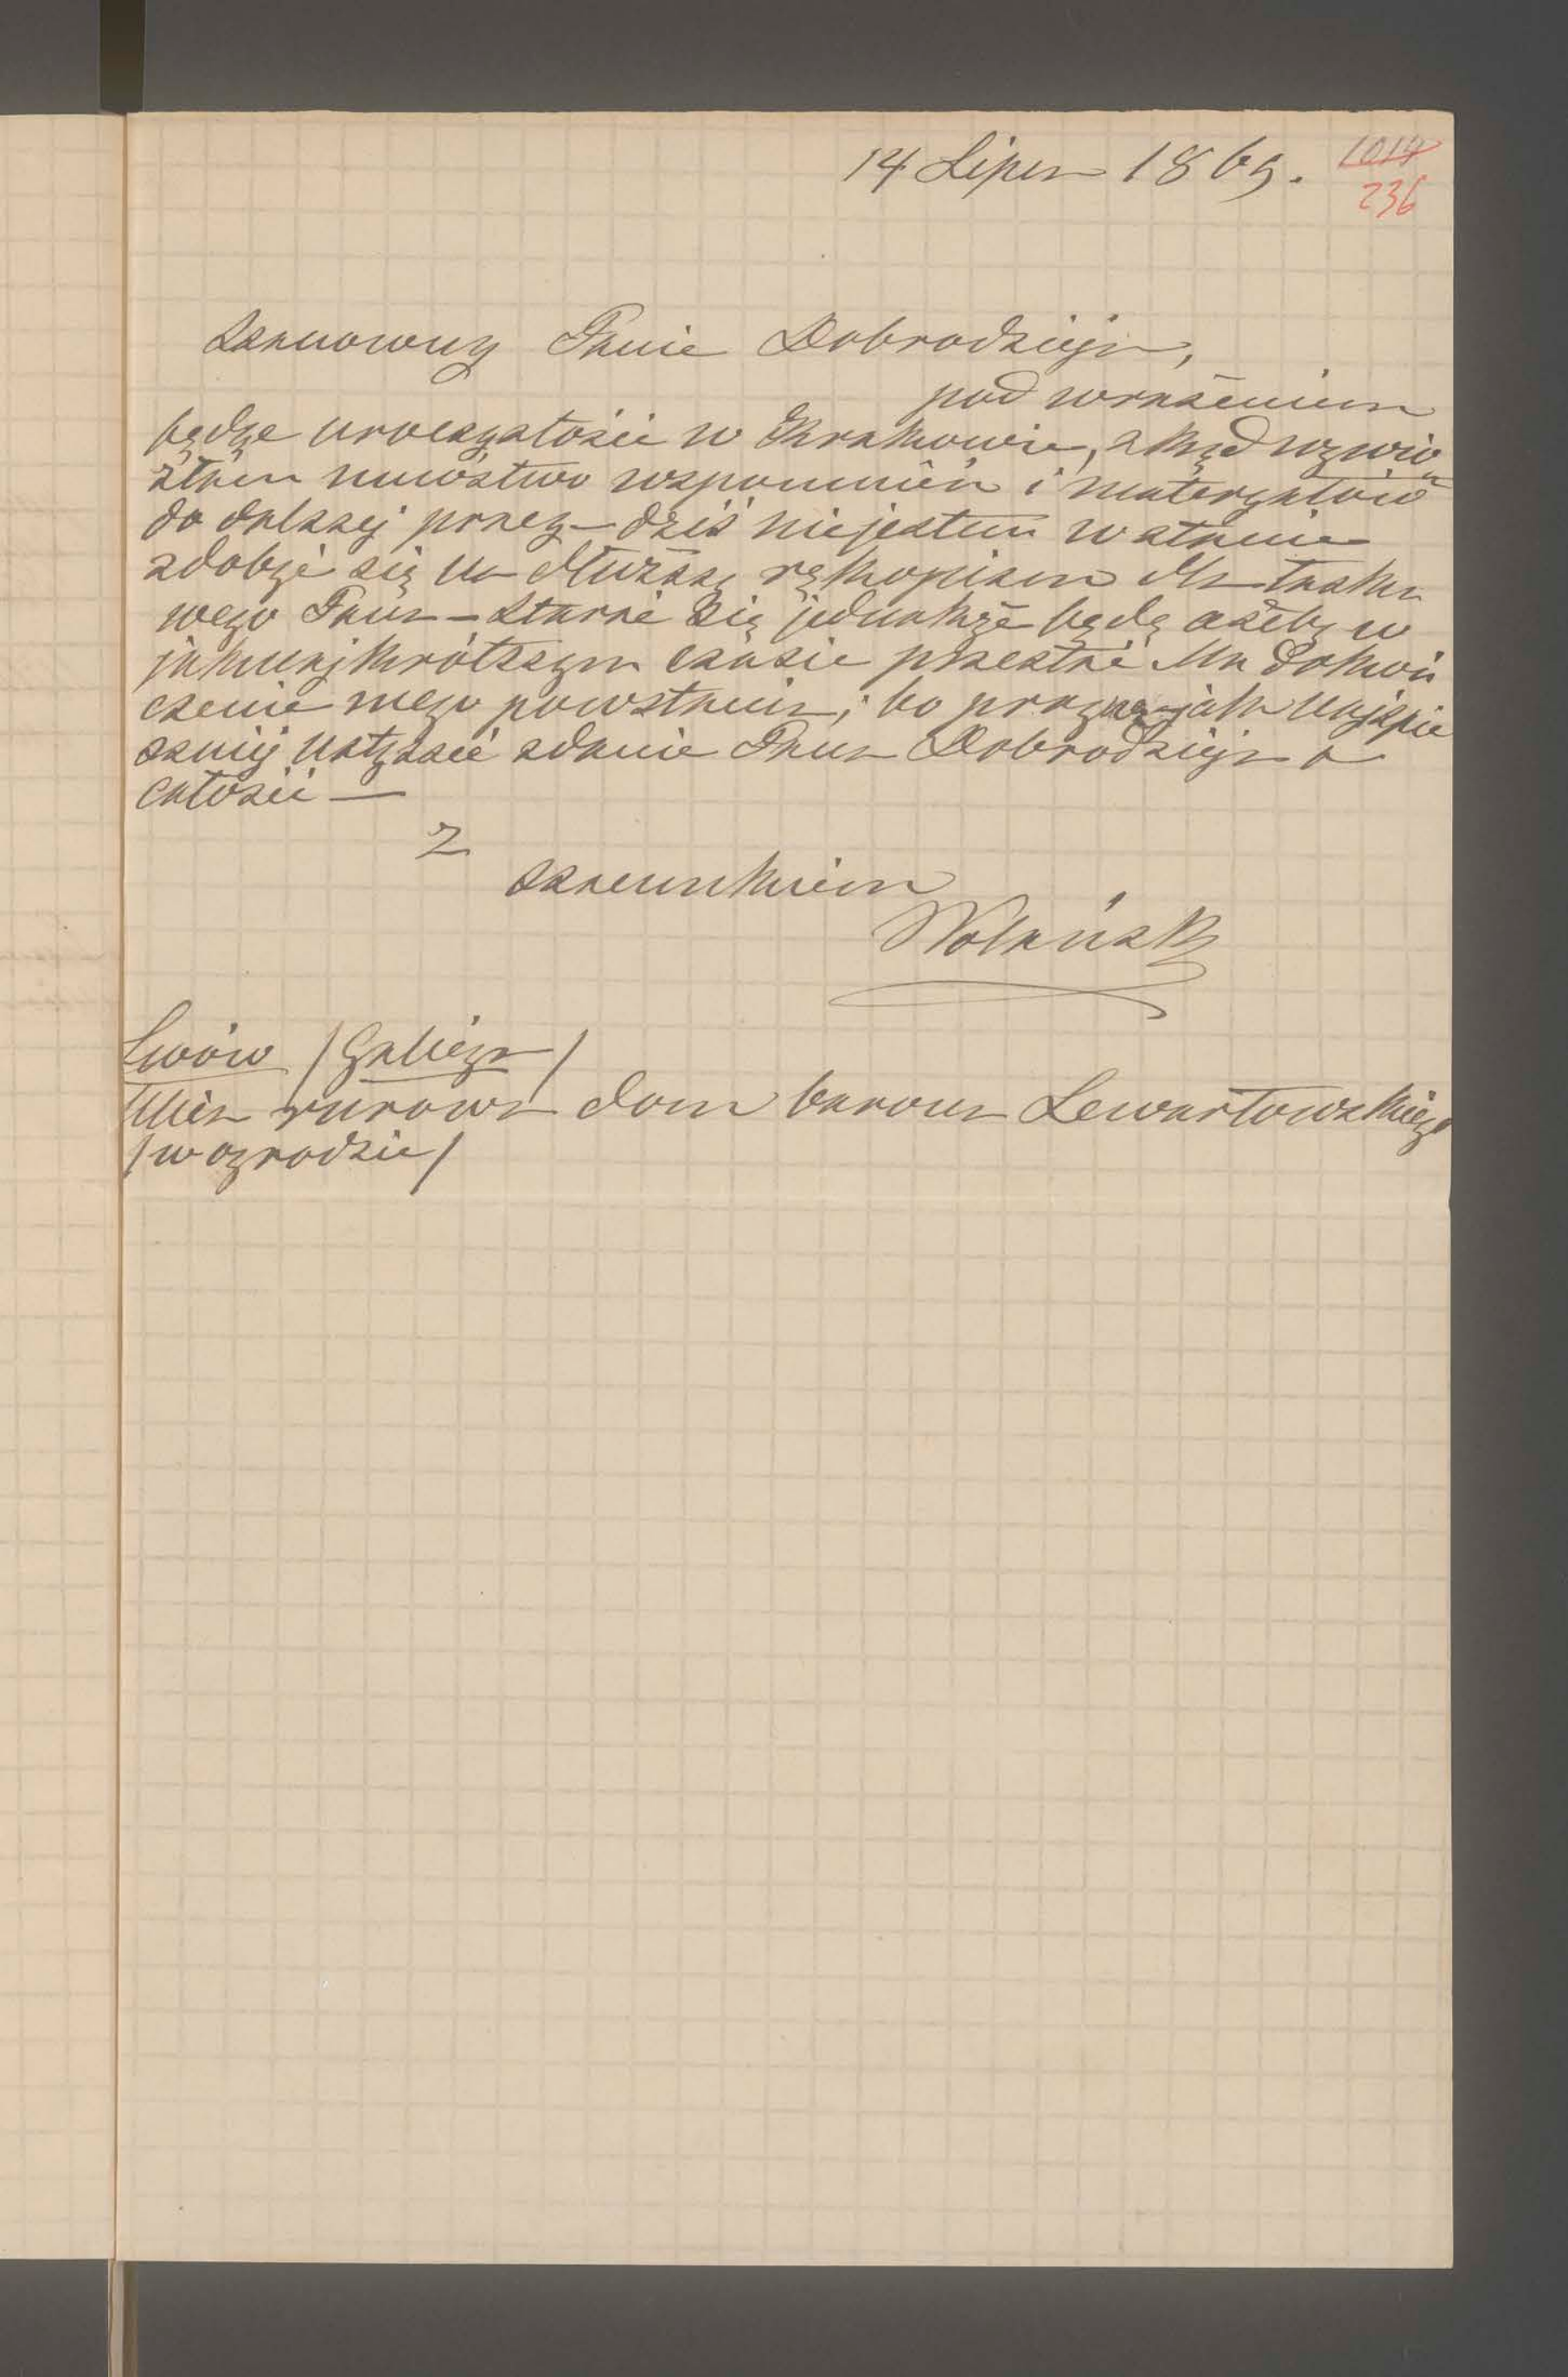 14 Lipca 1869.
1014
236
Szanowny Panie Dobrodzieju,
pod wrażeniem
będąc uroczystości w Krakowie, zkąd wywio
złam mnóstwo wspomnień i materyałów
do dalszej pracy – dziś niejestem w stanie
zdobyć się na dłuższy rękopism dla łaska
wego Pana – Starać się jednakże będę ażeby w
jaknajkrótszym czasie przesłać Mu dokoń
czenie mego powstania; bo pragnę jak najspie
szniej usłyszeć zdanie Pana Dobrodzieja o
całości —
Z
szacunkiem
Wolański
Lwów /Galicya/
Ulica rurowa dom barona Lewartowskiego
/w ogrodzie/